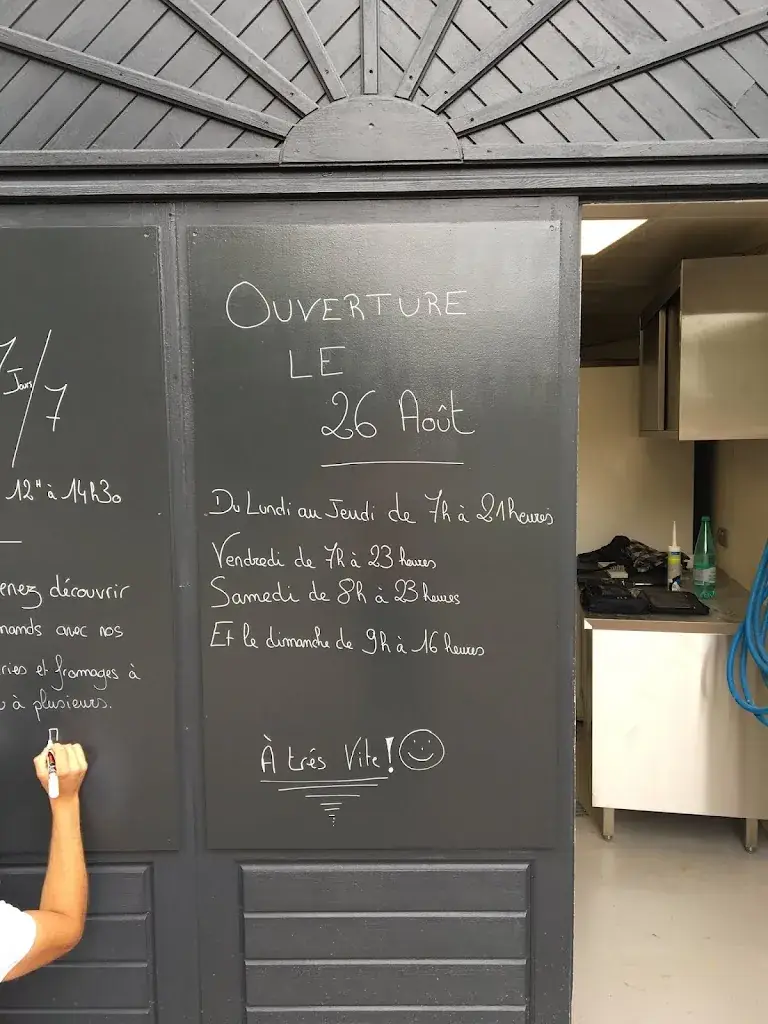 7 Jours/7
12" à 14h30
enez découvrir
mands avec nos
ries et fromages à
à plusieurs.
OUVERTURE
LE
26 Août
Du Lundi au Jeudi de 7h à 21 heures
Vendredi de 7h à 23 heures
Samedi de 8h à 23 heures
Et le dimanche de 9h à 16 heures
À trés Vite! ☺